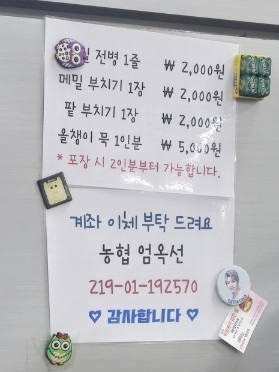 전병 1줄 ₩ 2,000원
메밀 부치기 1장 ₩ 2,000원
팥 부치기 1장 ₩ 2,000원
올챙이 묵 1인분 ₩ 5,000원
* 포장 시 2인분부터 가능합니다.
계좌 이체 부탁 드려요
농협 엄옥선
219-01-192570
♡ 감사합니다 ♡